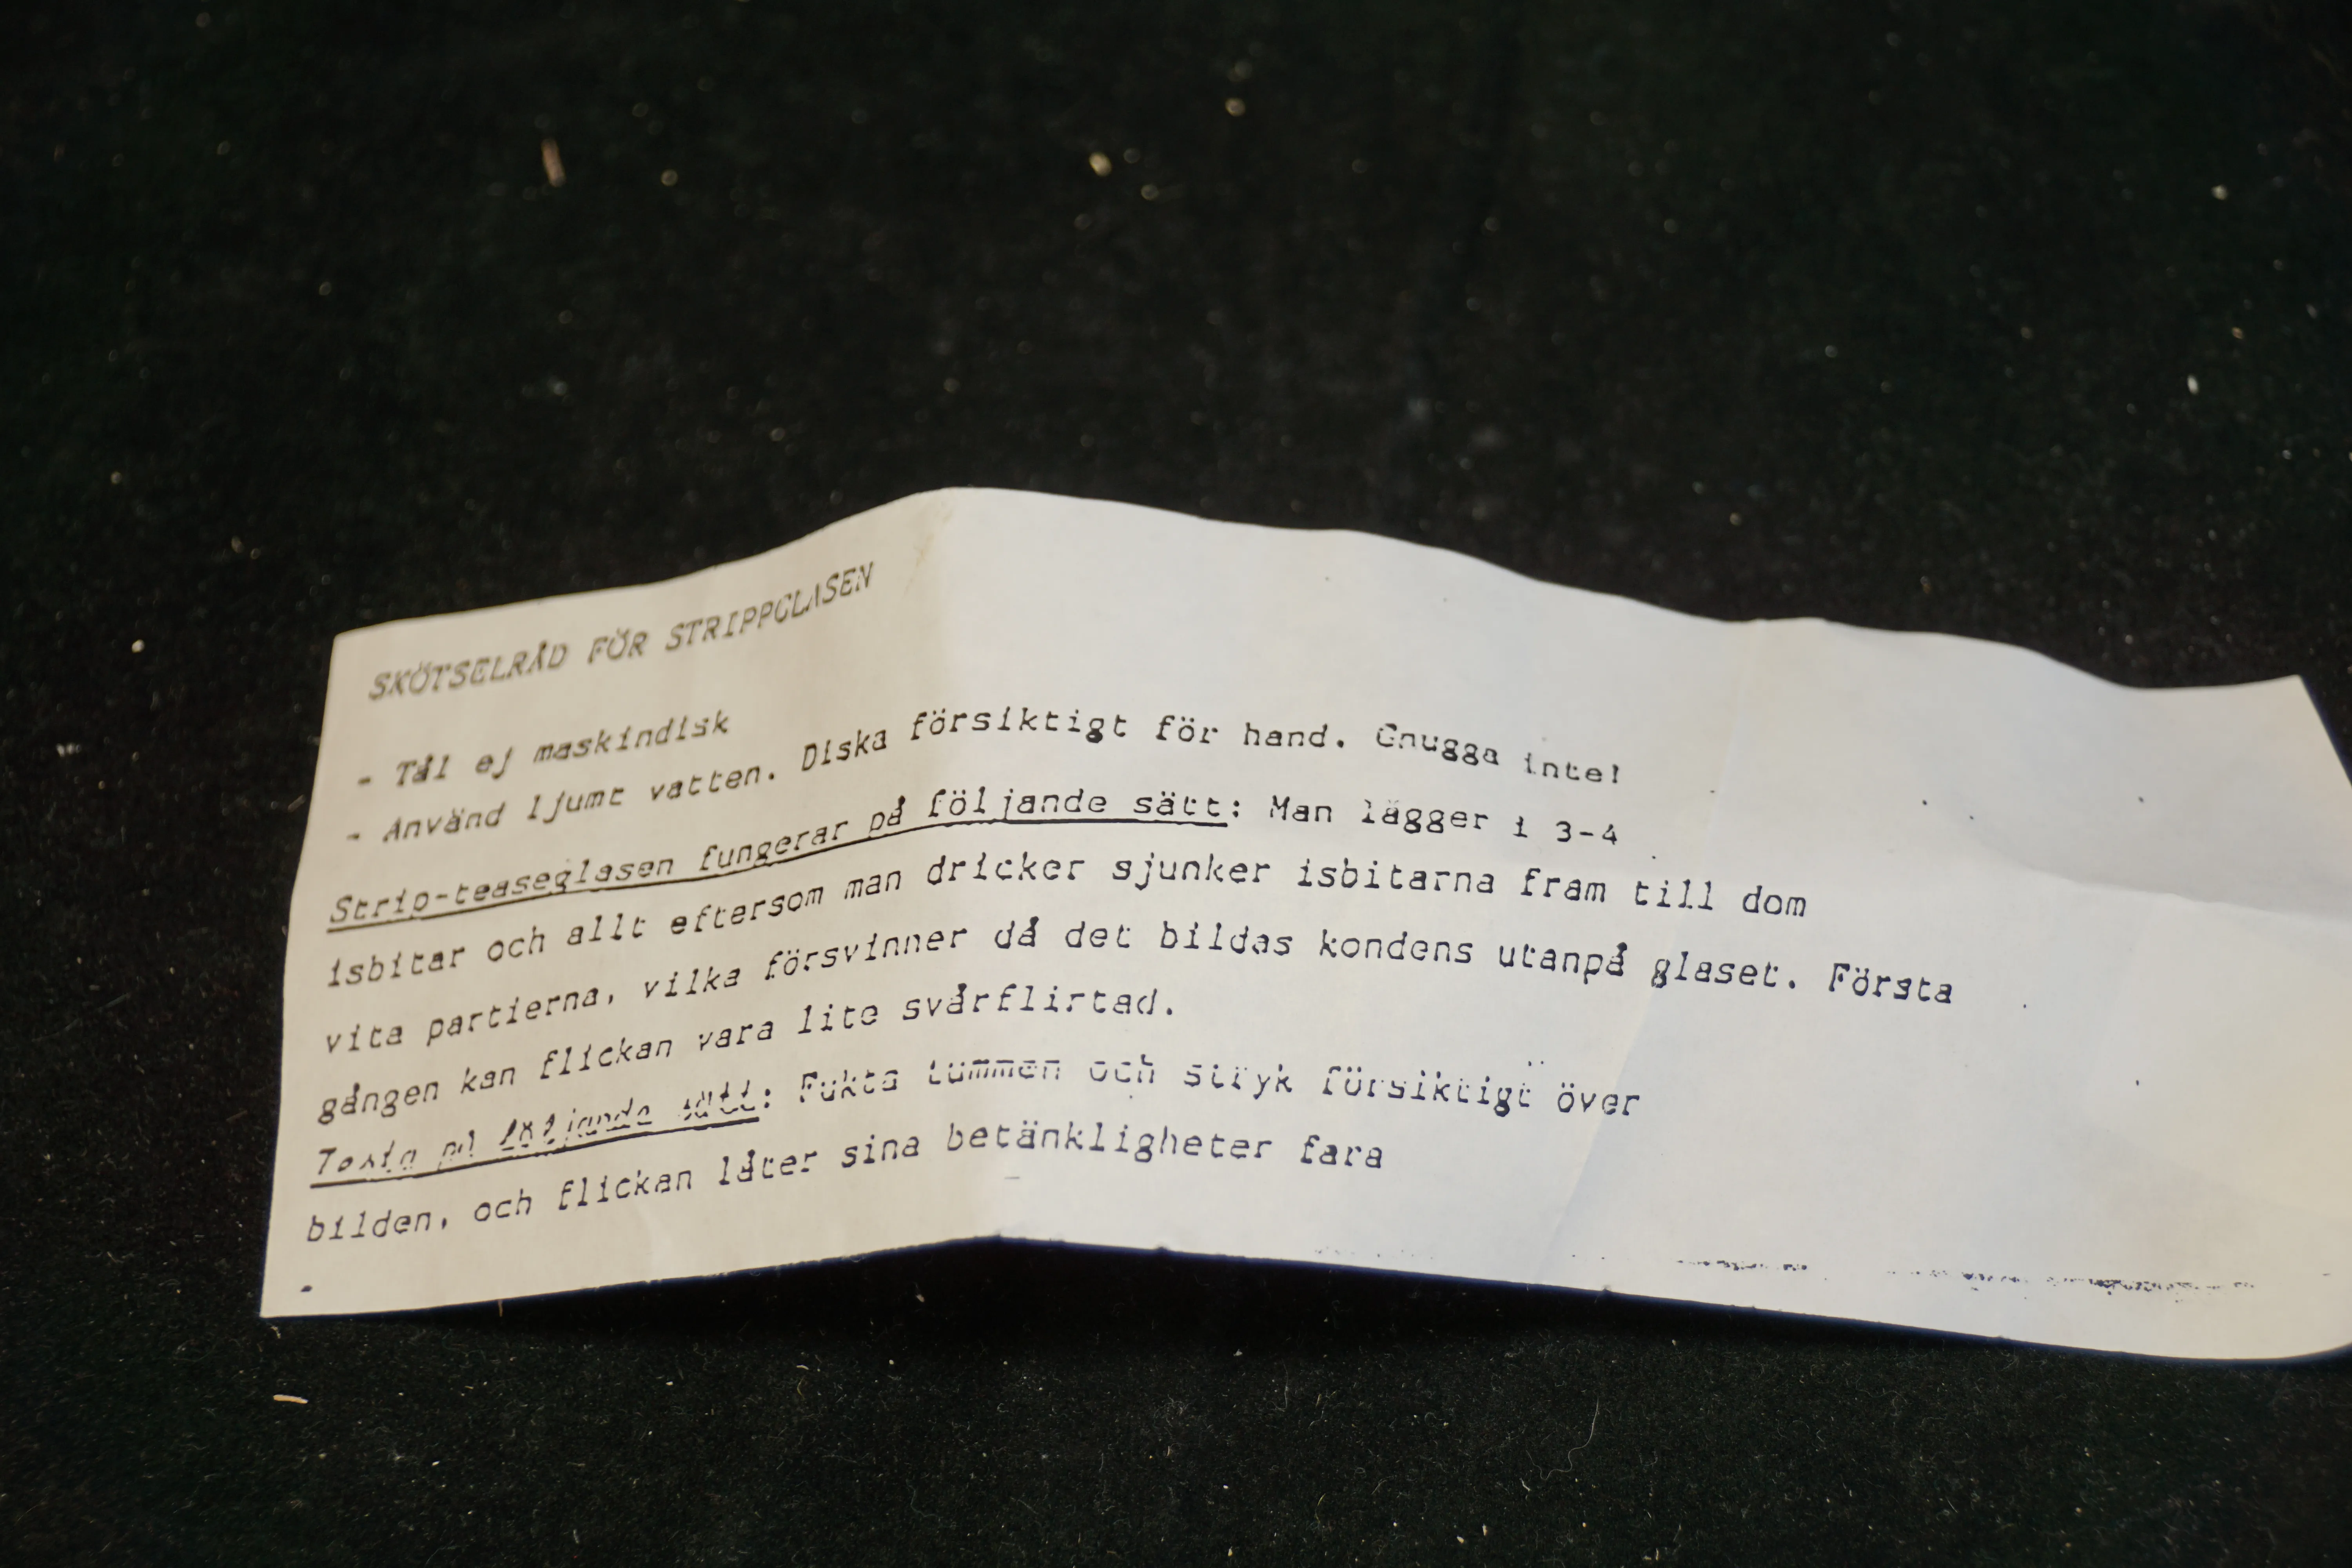 SKÖTSELRÅD FÖR STRIPPGLASEN
- Tål ej maskindisk
- Använd ljumt vatten. Diska försiktigt för hand. Gnugga inte!
Strip-teaseglasen fungerar på följande sätt: Man lägger i 3-4
isbitar och allt eftersom man dricker sjunker isbitarna fram till dom
vita partierna, vilka försvinner då det bildas kondens utanpå glaset. Första
gången kan flickan vara lite svårflirtad.
på följande sätt: Fukta tummen och stryk försiktigt över
bilden, och flickan låter sina betänkligheter fara
.